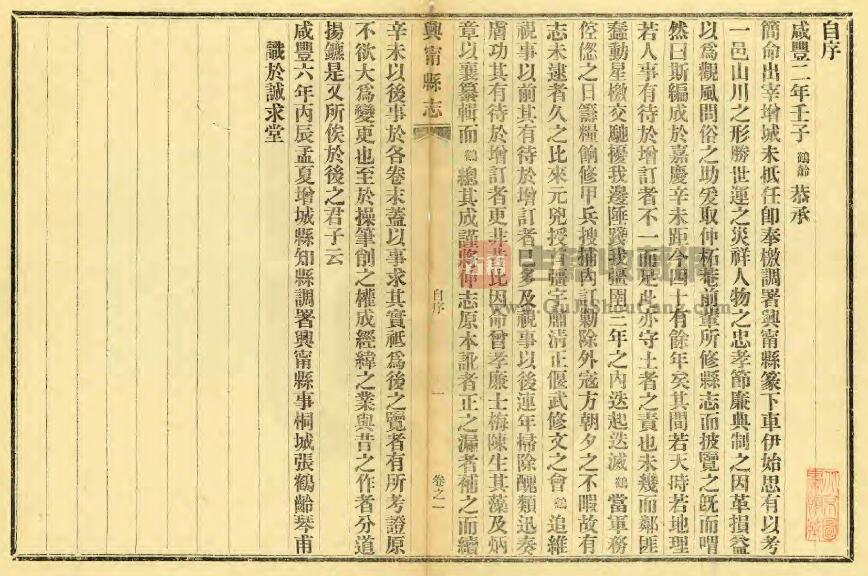 自序
咸豐二年壬子鶴齡恭承
簡命出宰增城未抵任卽奉檄調署興甯縣篆下車伊始思有以考
一邑山川之形勝世運之災祥人物之忠孝節廉典制之因革損益
以爲觀風問俗之助爰取仲柘菴前輩所修縣志而披覽之旣而喟
然曰斯編成於嘉慶辛未距今四十有餘年矣其間若天時若地理
若人事有待於增訂者不一而足此亦守土者之責也未幾而鄰匪
蠢動星檄交馳擾我邊陲踐我疆圉三年之內迭起迭滅鶴當軍務
倥傯之日籌糧餉修甲兵搜捕內訌勦除外寇方朝夕之不暇故有
志未逮者久之比來元兇授首疆宇肅淸正偃武修文之會鶴追維
視事以前其有待於增訂者已多及視事以後連年掃除醜類迅奏
膚功其有待於增訂者更非昔比因命曾孝廉士梅陳生其藻及炳
章以襄纂輯而鶴總其成謹將仲志原本訛者正之漏者補之而續
興甯縣志
自序
一
卷之一
辛未以後事於各卷末蓋以事求其實祗爲後之覽者有所考證原
不欲大爲變更也至於操筆削之權成經緯之業與昔之作者分道
揚鑣是又所俟於後之君子云
咸豐六年丙辰孟夏增城縣知縣調署興甯縣事桐城張鶴齡琴甫
識於誠求堂
www.GuJiShouCang.com